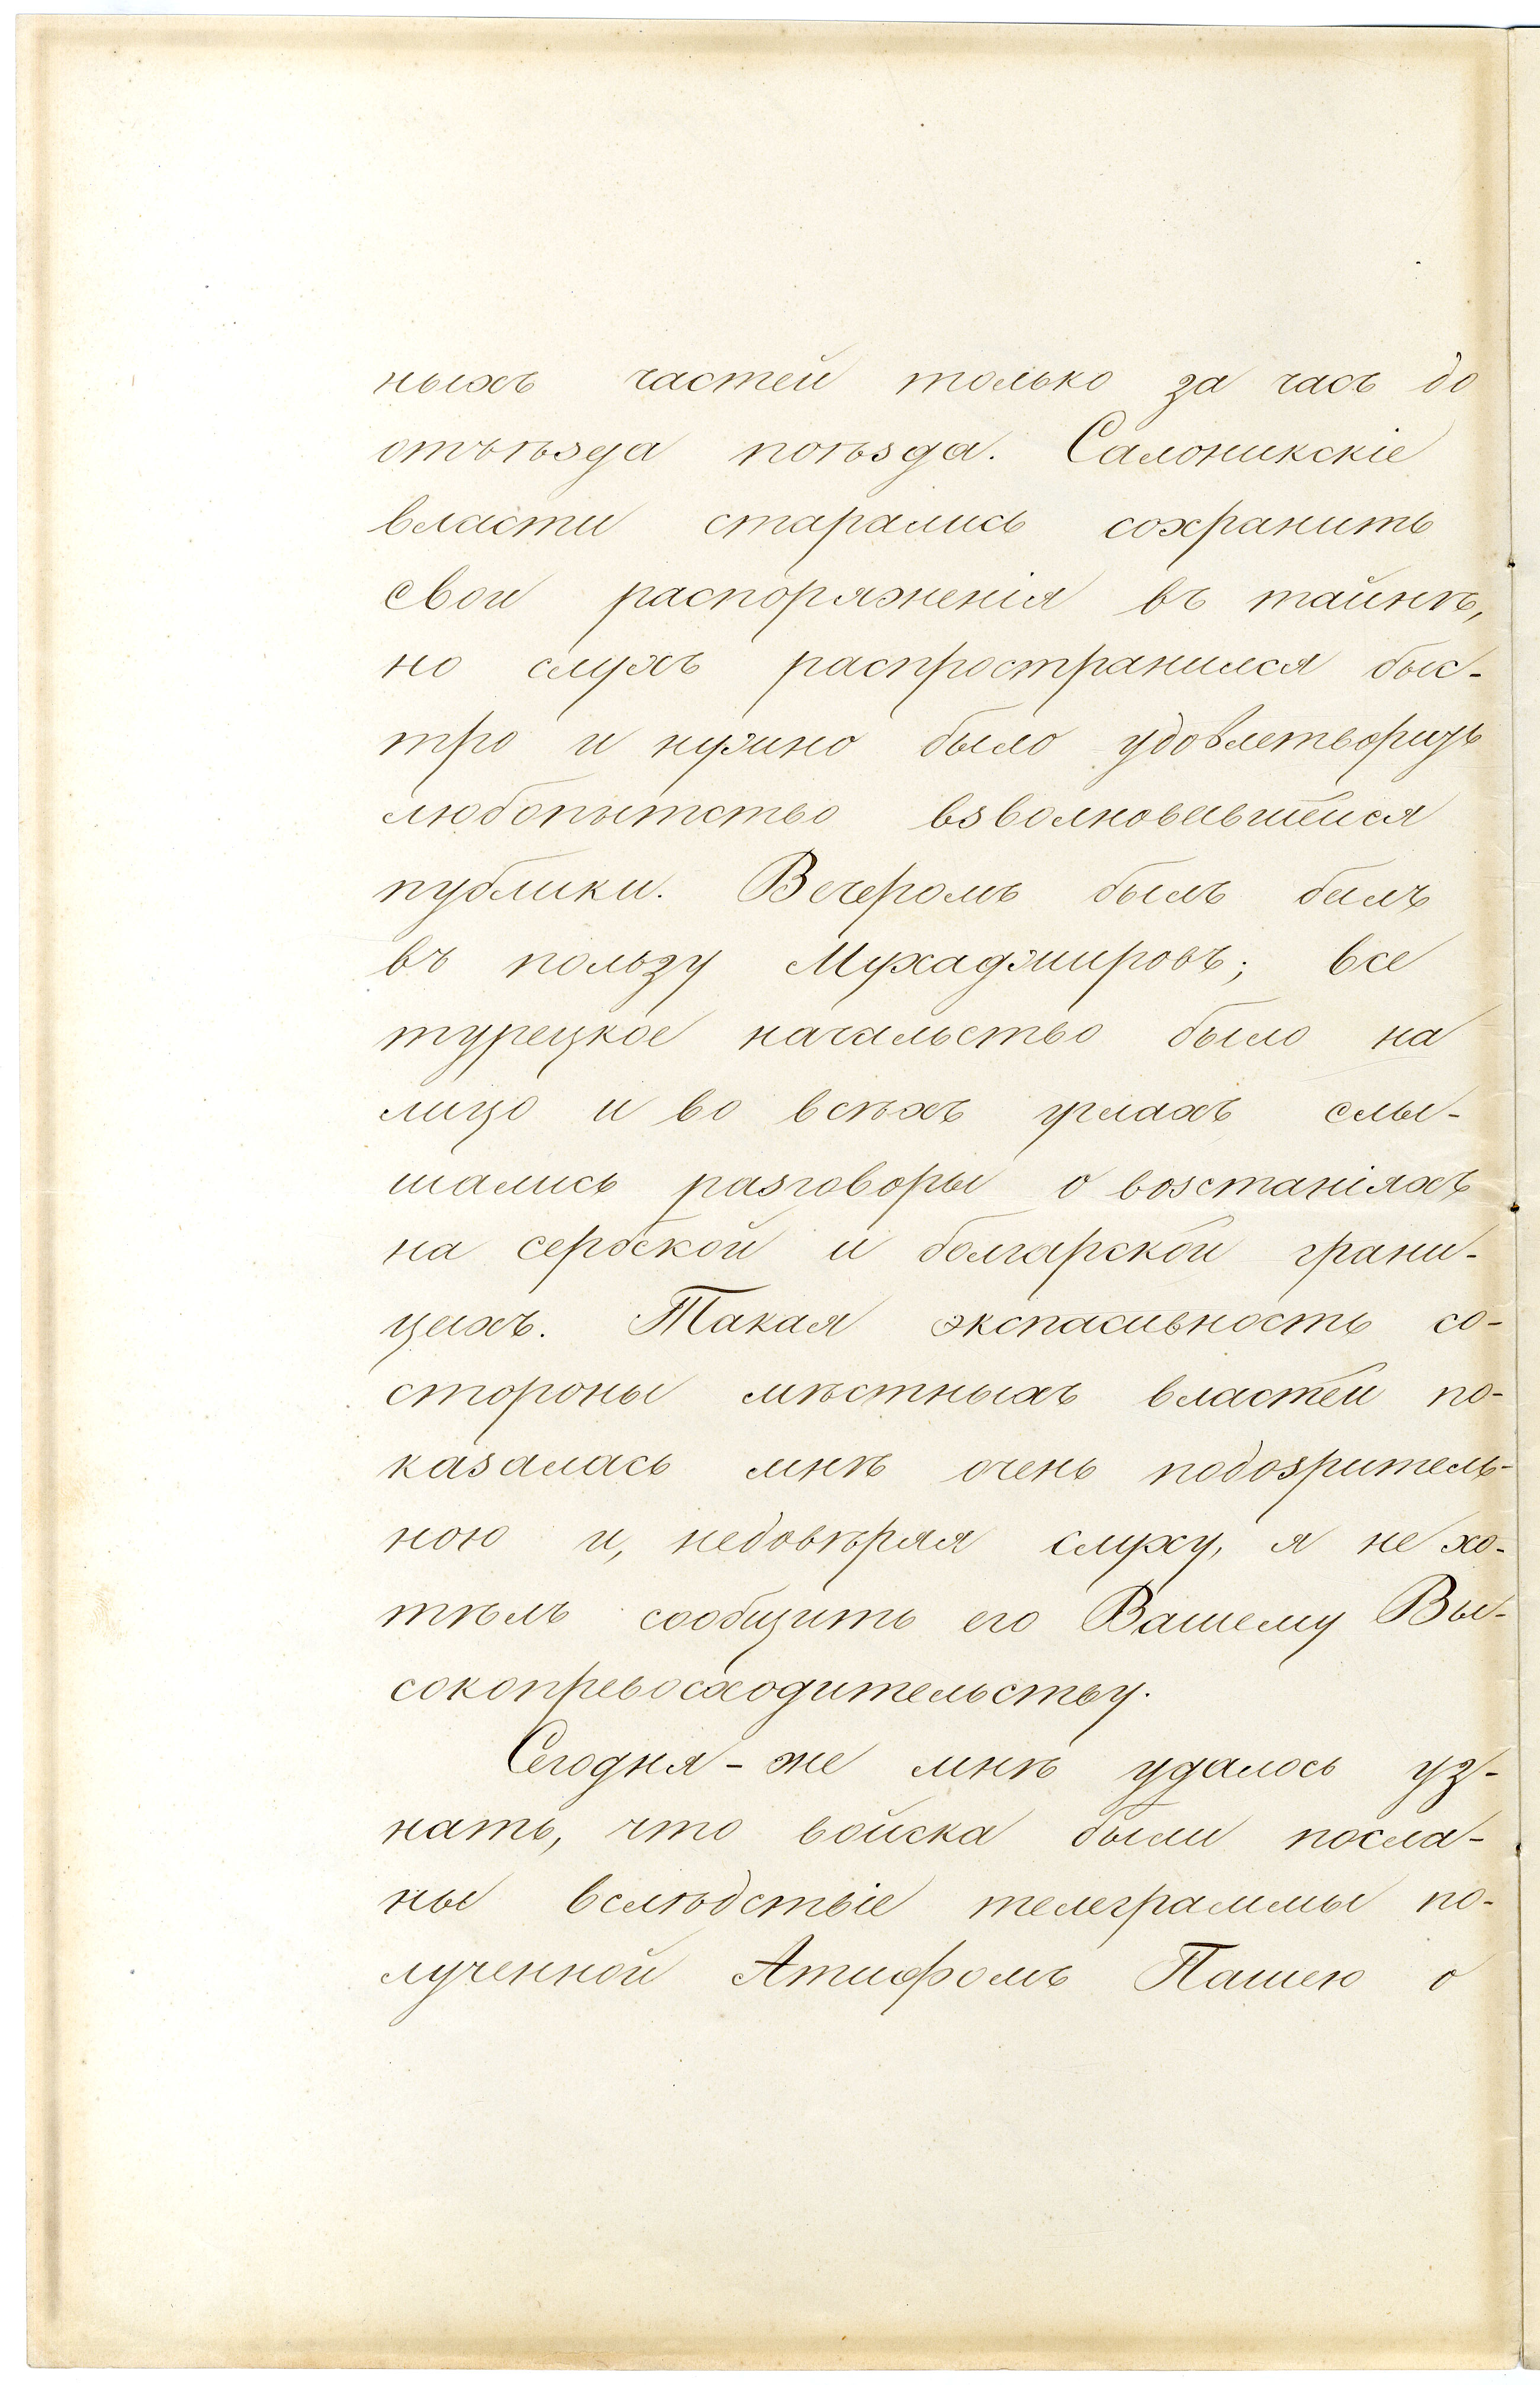 ныхъ частей только за часъ до
отъѣзда поѣзда. Салоникскіе
власти старались сохранить
свои распоряженія въ тайнѣ,
но слухъ распространился быс-
тро и нужно было удовлетворить
любопытство взволновавшейся
публики. Вечеромъ былъ балъ
въ пользу Мухаджировъ; все
турецкое начальство было на
лицо и во всѣхъ углахъ слы-
шались разговоры о возстаніяхъ
на сербской и болгарской грани-
цахъ. Такая экспасивность со-
стороны мѣстныхъ властей по-
казалась мнѣ очень подозритель-
ною и, недовѣряя слуху, я не хо-
тѣлъ сообщить его Вашему Вы-
сокопревосходительству.
Сегодня-же мнѣ удалось уз-
нать, что войска были посла-
ны вслѣдствіе телеграммы по-
лученной Атифомъ Пашею о